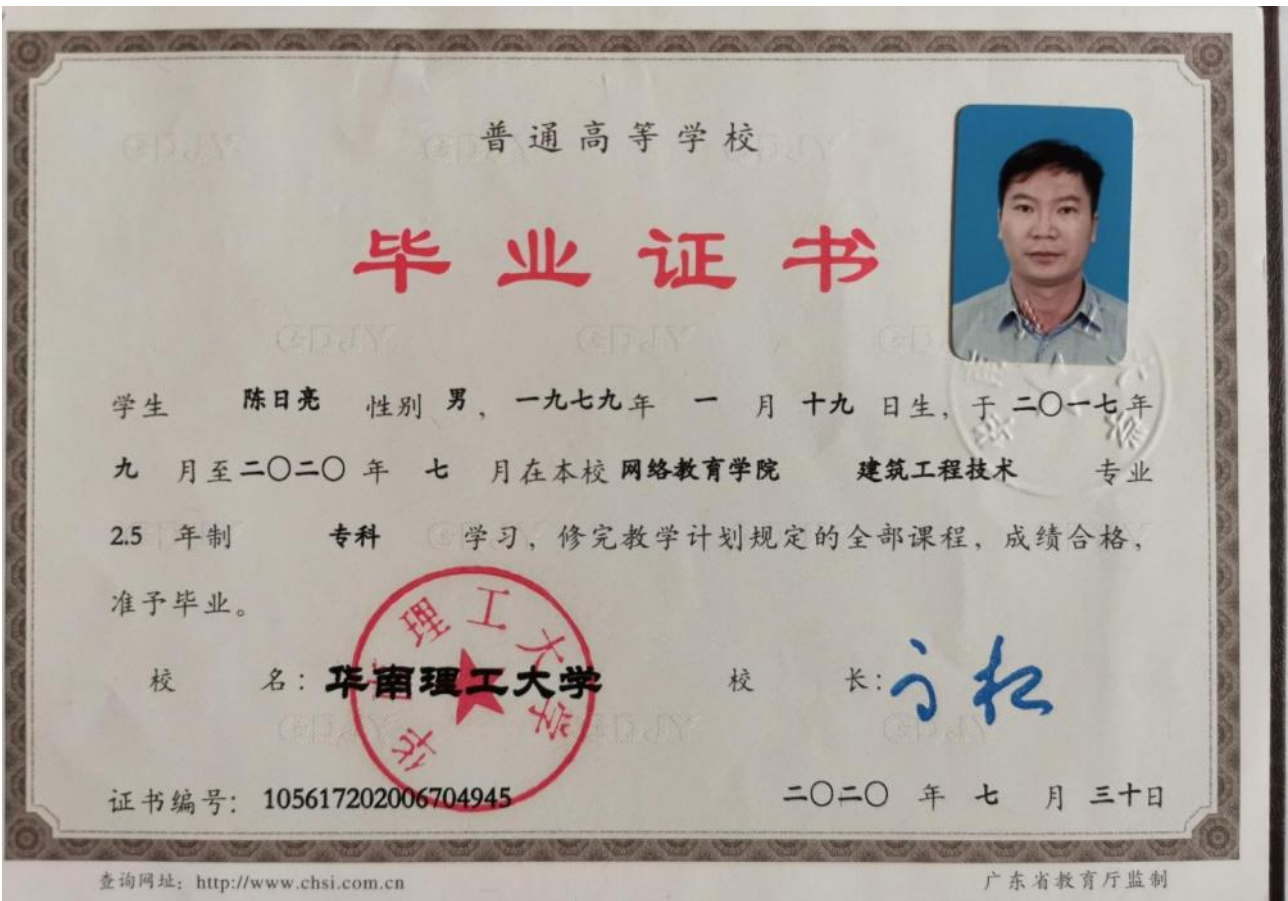 普通高等学校
毕业证书
学生 陈日亮 性别 男，一九七九年 一 月 十九 日生，于 二〇一七年
九 月至二〇二〇 年 七 月在本校 网络教育学院 建筑工程技术 专业
2.5 年制 专科 学习，修完教学计划规定的全部课程，成绩合格，
准予毕业。
校 名：华南理工大学 校 长：
华南理工大学
证书编号：105617202006704945 二〇二〇 年 七 月 三十日
查询网址：http://www.chsi.com.cn 广东省教育厅监制